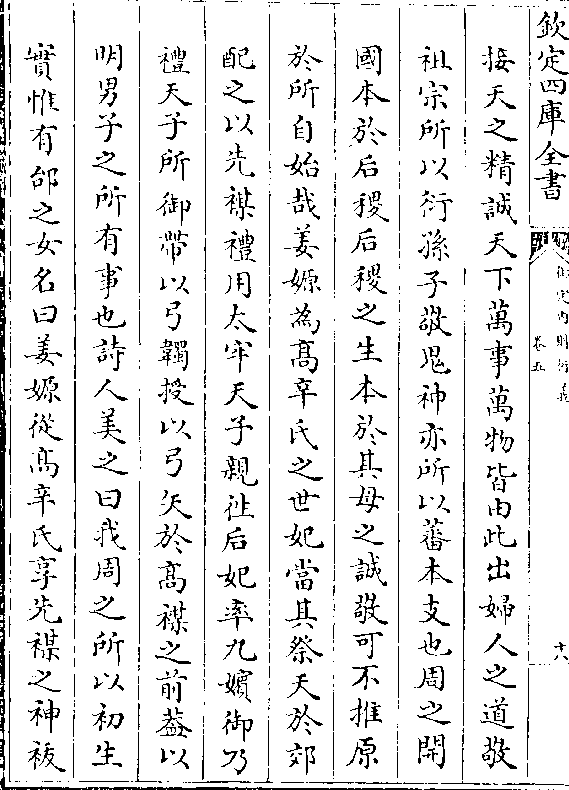 欽定四庫全書
御定內則衍義
卷五
十八
接天之精誠天下萬事萬物皆由此出婦人之道敬
祖宗所以衍孫子敬鬼神亦所以蕃本支也周之開
國本於后稷后稷之生本於其母之誠敬可不推原
於所自始哉姜嫄為髙辛氏之世妃當其祭天於郊
配之以先禖禮用太牢天子親徃后妃率九嬪御乃
禮天子所御帶以弓韣授以弓矢於髙禖之前葢以
明男子之所有事也詩人美之曰我周之所以初生
實惟有邰之女名曰姜嫄從髙辛氏享先禖之神祓